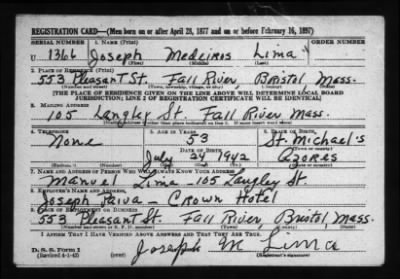 REGISTRATION CARD—(Men born on or after April 28, 1877 and on or before February 16, 1897)
SERIAL NUMBER 1. NAME (Print) ORDER NUMBER
U 1366 Joseph Medeiros Lima
(First) (Middle) (Last)
2. PLACE OF RESIDENCE (Print)
553 Pleasant St. Fall River Bristol Mass.
(Number and street) (Town, township, village, or city) (County) (State)
[THE PLACE OF RESIDENCE GIVEN ON THE LINE ABOVE WILL DETERMINE LOCAL BOARD
JURISDICTION; LINE 2 OF REGISTRATION CERTIFICATE WILL BE IDENTICAL]
3. MAILING ADDRESS
105 Langley St. Fall River Mass.
4. TELEPHONE 5. AGE IN YEARS 6. PLACE OF BIRTH
None 53 St. Michael's
DATE OF BIRTH (Town or county)
July 24 1942 Azores
(Mo.) (Day) (Yr.) (State or country)
7. NAME AND ADDRESS OF PERSON WHO WILL ALWAYS KNOW YOUR ADDRESS
Manuel Lima - 105 Langley St.
8. EMPLOYER'S NAME AND ADDRESS
Joseph Paiva - Crown Hotel
9. PLACE OF EMPLOYMENT OR BUSINESS
553 Pleasant St. Fall River, Bristol, Mass.
(Number and street or R. F. D. number) (Town) (County) (State)
I AFFIRM THAT I HAVE VERIFIED ABOVE ANSWERS AND THAT THEY ARE TRUE.
D. S. S. Form 1
(Revised 4-1-42) (over)
Joseph M Lima